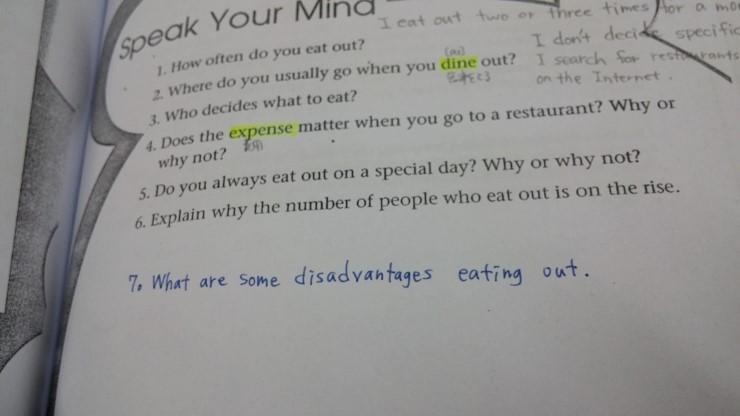 Speak Your Mind
I eat out two or three times for a mo
1. How often do you eat out?
I don't decide specific
2. Where do you usually go when you dine out?
(ai)
I search for restaurants
on the Internet.
3. Who decides what to eat?
4. Does the expense matter when you go to a restaurant? Why or
why not?
5. Do you always eat out on a special day? Why or why not?
6. Explain why the number of people who eat out is on the rise.
7. What are some disadvantages eating out.